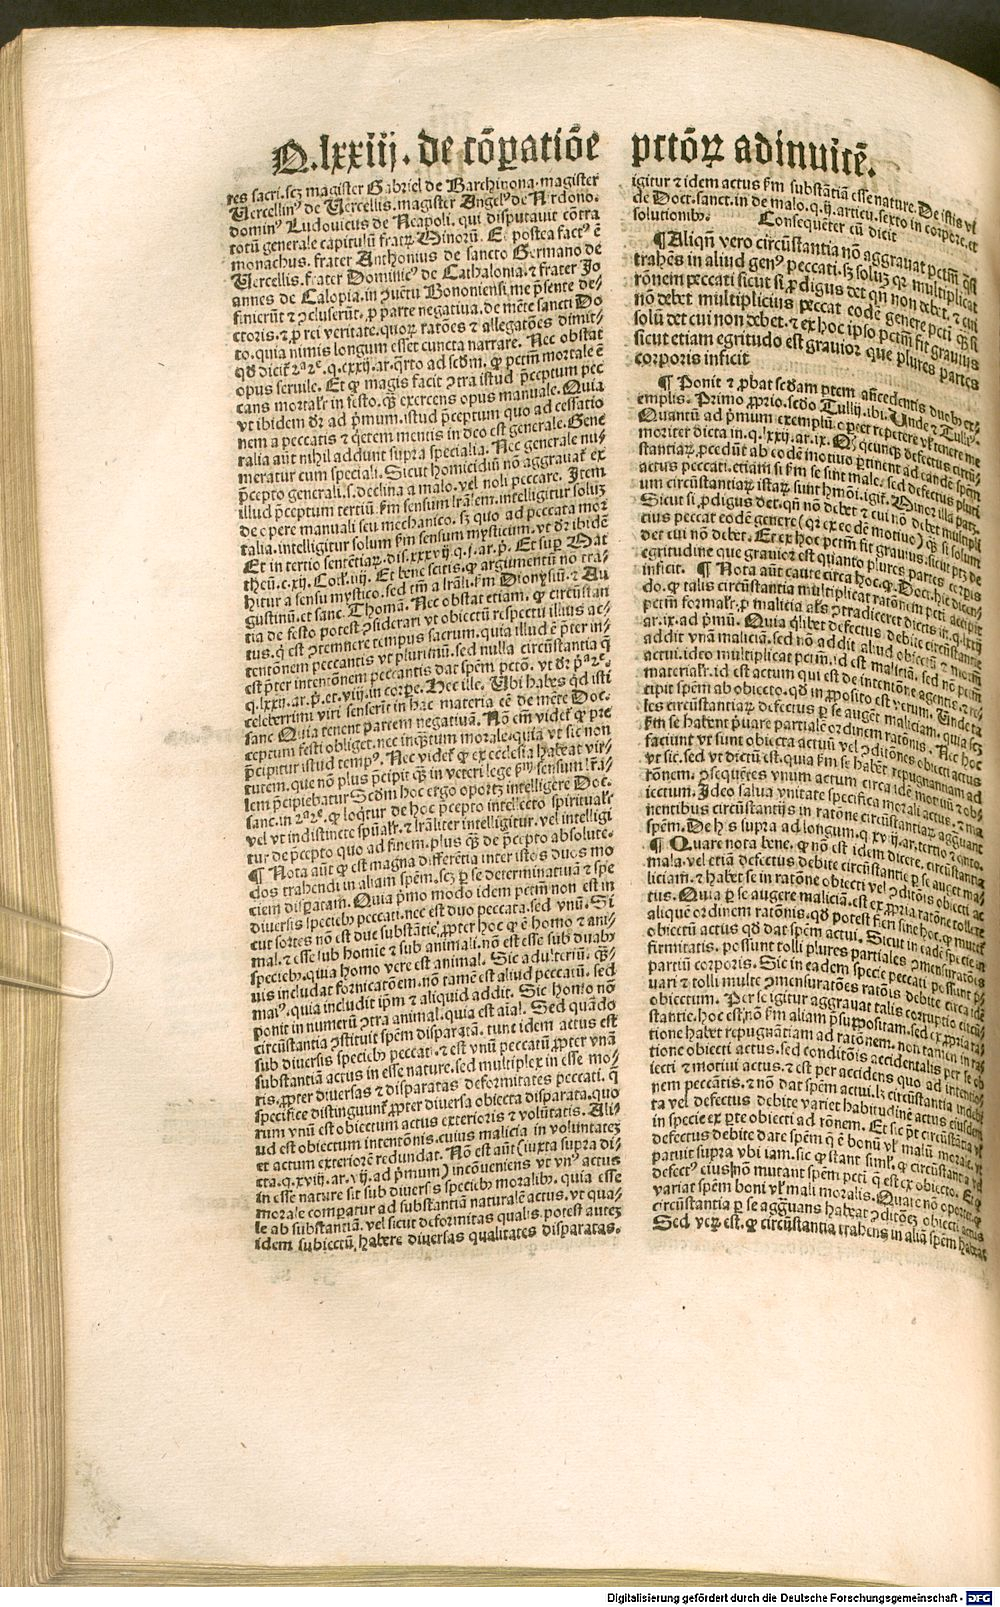 Q. lxxiij. de cōpatiōe pctōꝝ adinuicē.
res sacri. scꝫ magister Gabriel de Barchinona. magister
Uercellinꝰ de Uercellis. magister Angelꝰ de Nrdono.
dominꝰ Ludouicus de Neapoli. qui disputauit cōtra
totū generale capitulū fratꝝ Minorū. Et postea factꝰ ē
monachus. frater Anthonius de sancto Germano de
Uercellis. frater Dominicꝰ de Cathalonia. ⁊ frater Jo
annes de Calopia. in ꝯuētu Bononiensi. me p̄sente de⸗
finierūt ⁊ ꝯcluserūt. ꝓ parte negatiua. de mēte sancti Do
ctoris. ⁊ ꝓ rei veritate. quoꝝ ratōes ⁊ allegatōes dimit⸗
to. quia nimis longum esset cuncta narrare. Nec obstat
opus seruile. Et ꝙ magis facit ꝯtra istud p̄ceptum pec
cans mortalr̄ in festo. qꝫ exercens opus manuale. Quia
vt ibidem dr̄ ad p̄mum. istud p̄ceptum quo ad cessatio
nem a peccatis ⁊ q̇etem mentis in deo est generale. Gene
ralia aūt nihil addunt supra specialia. Nec generale nu⸗
meratur cum speciali. Sicut homicidiū nō aggrauat̄ ex
p̄cepto generali. s. declina a malo. vel noli peccare. Item
illud p̄ceptum tertiū. fm sensum lr̄alem. intelligitur soluꝫ
de opere manuali seu mechanico. sꝫ quo ad peccata mor
talia. intelligitur solum fm sensum mysticum. vt dr̄ ibidē
Et in tertio sentētiaꝝ. dis. xxxvij. q. j. ar. p̄. Et suꝑ Mat
theū. c. xij. Coll. iiij. Et bene scitis. ꝙ argumentū nō tra⸗
hitur a sensu mystico. sed tm̄ a lrāli. fm Dionysiū. ⁊ Au
gustinū. et sanc. Thomā. Nec obstat etiam. ꝙ circūstan
tia de festo potest ꝯsiderari vt obiectū respectu illius ac⸗
tus. q̄ est ꝯtemnere tempus sacrum. quia illud ē p̄ter in⸗
tentōnem peccantis vt plurimū. sed nulla circūstantia q̄
est p̄ter intentōnem peccantis dat spēm pctō. vt dr̄ p̄a2e.
q. lxxij. ar. p̄. et. viij. in corpe. Hec ille. Ubi habes qd isti
celeberrimi viri senserūt in hac materia eē de mēte Doc.
sanc. Quia tenent partem negatiuā. Nō em̄ videt̄ ꝙ pre
ceptum festi obliget. nec inq̄ꝫtum morale. quia vt sic non
p̄cipitur istud tempꝰ. Nec videt̄ ꝙ ex ecclesia habeat vir⸗
tutem. que nō plus p̄cipit qꝫ in veteri lege fm sensum lr̄i⸗
lem p̄cipiebatur. Scdm hoc ergo oportꝫ intelligere Doc.
sanc. in 2a2e. ꝙ loq̇tur de hoc p̄cepto intellecto spiritualr̄
vel vt indistincte spūalr̄. ⁊ lrāliter intelligitur. vel intelligi
tur de p̄cepto quo ad finem. plus qꝫ de p̄cepto absolute.
¶ Nota aūt ꝙ est magna differētia inter istos duos mo
dos trahendi in aliam spēm. scꝫ ꝑ se determinatiuā ⁊ spe
ciem disꝑatam. Quia p̄mo modo idem pctm̄ non est in
diuersis specieb9 peccati. nec est duo peccata. sed vnū. Si
cut sortes nō est due substātie. ꝓpter hoc ꝙ ē homo ⁊ ani⸗
mal. ⁊ esse sub homie ⁊ sub animali. nō est esse sub duab9
specieb9. quia homo vere est animal. Sic adulteriū. qꝫ⸗
uis includat fornicatōem. nō tamē est aliud peccatū. sed
maiꝰ. quia includit ip̄m ⁊ aliquid addit. Sic homo nō
ponit in numerū ꝯtra animal. quia est aīal. Sed quādo
circūstātia ꝯstituit spēm disparatā. tunc idem actus est
sub diuersis specieb9 peccati. ⁊ est vnū peccatū ꝓpter vnā
substantiā actus in esse nature. sed multiplex in esse mo⸗
ris. ꝓpter diuersas ⁊ disparatas deformitates peccati. q̄
specifice distinguunt̄ ꝓpter diuersa obiecta disparata. quo
rum vnū est obiectum actus exterioris ⁊ volūtatis. Ali⸗
ud est obiectum intentōnis. cuius malicia in voluntateꝫ
et actum exteriorē redundat. Nō est aūt (iuxta supra di⸗
cta. q. xviij. ar. vij. ad p̄mum) incōueniens vt vnꝰ actus
in esse nature sit sub diuersis specieb9 moralib9. quia esse
morale comparatur ad substantiā naturalē actus. vt qua⸗
le ab substantiā. vel sicut deformitas qualis. potest auteꝫ
idem subiectū. habere diuersas qualitates disparatas.
igitur ⁊ idem actus fm substātiā esse nature. De istis vꝫ
de Doct. sanct. in de malo. q. ij. articu. sexto in corpore. et
solutionib9. Consequēter cū dicit
¶ Aliqn̄ vero circūstantia nō aggrauat pctm̄ qͣsi
trahēs in aliud genꝰ peccati. sꝫ soluꝫ qꝛ multiplicat
rōnem peccati sicut si ꝓdigus det qn̄ non debet. ⁊ cui
nō debet multiplicius peccat eodē genere pcti qꝫ si
solū det cui non debet. ⁊ ex hoc ipso pctm̄ fit grauius
sicut etiam egritudo est grauior que plures partes
corporis inficit
¶ Ponit ⁊ ꝓbat scdam ptem añcedentis duob9 ex⸗
emplis. Primo ꝓprio. scdo Tullij. ibi. Unde ⁊ Tulliꝰ.
Quantū ad p̄mum exemplū oꝑtet repetere vl̄ tenere me
moriter dicta in. q. lxxij. ar. ix. Qꝫ quicunqꝫ defectus circū⸗
stantiaꝝ ꝓcedūt ab eodē motiuo ꝑtinent ad eandē spēm
actus peccati. etiam si fm se sint male. sed defectus pluri
um circūstantiaꝝ istaꝝ sunt hmōi. igit̄. Minor illa patꝫ.
Sicut si ꝓdigus det. qn̄ nō debet ⁊ cui nō debet multipli
cius peccat eodē genere (qꝛ ex eodē motiuo) qꝫ si solum
det cui non debet. Et ex hoc pctm̄ fit grauius. sicut ptꝫ de
egritudine que grauior est quanto plures partes corpis
inficit. ¶ Nota aūt caute circa hoc. ꝙ Doc. hic dicen⸗
do. ꝙ talis circūstantia multiplicat ratōnem pcti accipit
pctm̄ formalr̄. ꝓ malicia als̄ ꝯtradiceret dictis in. q. lxxij
ar. ix. ad p̄mū. Quia qͥlibet defectus debite circūstantie
addit vnā maliciā. sed nō addit aliud obiectū ⁊ motiū
actui. ideo multiplicat pctm̄. id est maliciā. sed nō pctm̄
materialr̄. id est actum qui est de intentiōe agentis. ⁊ re⸗
cipit spēm ab obiecto. qd in ꝓposito est verum. Unde ta
les circūstantiaꝝ defectus ꝑ se augēt maliciam. quia scꝫ
fm se habent p̄uare partialē ordinem ratōnis. Nec hoc
faciunt vt sunt obiecta actuū vel ꝯditōnes obiecti actus
vt sic. sed vt dictū est. quia fm se habēt repugnantiam ad
rōnem. ꝯsequētes vnum actum circa idē motiuū ⁊ ob⸗
iectum. Ideo salua vnitate specifica morali actus. ⁊ ma
nentibus circūstantijs in ratōne circūstantiaꝝ aggrauant
spēm. De his supra ad longum. q. xviij. ar. tertio ⁊ q̇nto.
¶ Quare nota bene. ꝙ nō est idem dicere. circūstantia
mala. vel etiā defectus debite circūstantie ꝑ se auget ma⸗
liciam. ⁊ habet se in ratōne obiecti vel ꝯditōis obiecti ac
tus. Quia ꝑ se augere maliciā. est ex ꝓpria ratōne tollere
aliquē ordinem ratōnis. qd potest fieri sine hoc. ꝙ mutet̄
obiectū actus qd dat spēm actui. Sicut in eadē specie in
firmitatis. possunt tolli plures partiales ꝯmensuratōis
partiū corporis. Sic in eadem specie peccati possunt p̄⸗
uari ⁊ tolli multe ꝯmensuratōes ratōis debite circa idē
obiectum. Per se igitur aggrauat talis corruptio circū⸗
stantie. hoc est. nō fm aliam p̄supositam. sed ex ꝓpria ra⸗
tione habet repugnātiam ad ratōnem. non tamen in ra⸗
tione obiecti actus. sed conditōis accidentalis per se ob
iecti ⁊ motiui actus. ⁊ est per accidens quo ad intentio⸗
nem peccātis. ⁊ nō dat spēm actui. lꝫ circūstantia indebi
ta vel defectus debite variet habitudinē actus eiusdem
in specie ex pte obiecti ad rōnem. Et sic p̄t circūstātia vl̄
defectus debite dare spēm q̄ ē bonū vl̄ malū morale. vt
patuit supra vbi iam. sic ꝙ stant siml̄. ꝙ circūstantia vel
defectꝰ eius nō mutant spēm pcti q̄ est ex obiecto. Et ꝙ
variat spēm boni vl̄ mali moralis. Quare nō oportet. ꝙ
circūstantia ꝑ se aggrauans habeat ꝯditōeꝫ obiecti actus
Sed veꝝ est. ꝙ circūstantia trahens in aliā spēm habeat
Digitalisierung gefördert durch die Deutsche Forschungsgemeinschaft - DFG